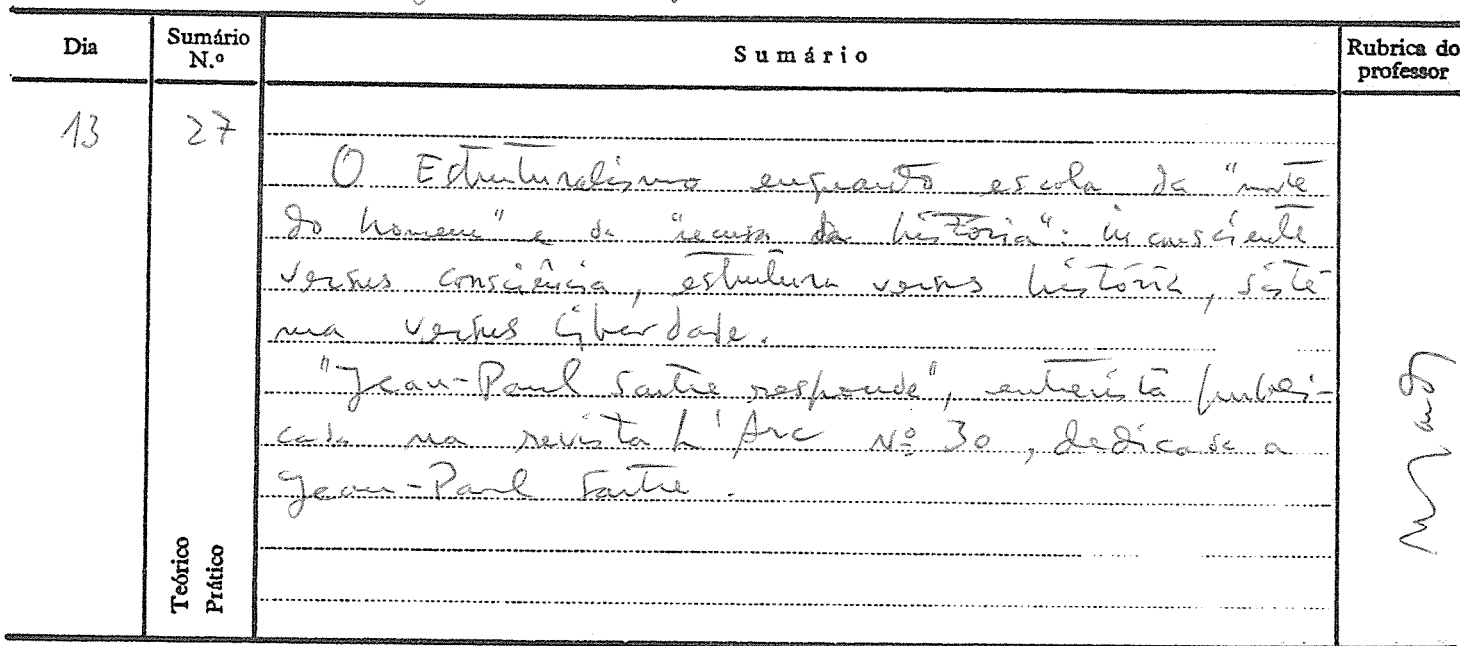 Dia
Sumário N.º
Sumário
Rubrica do professor
13
27
O Estruturalismo enquanto escola da "morte
do homem" e da "recusa da história": inconsciente
versus consciência, estrutura versus história, siste
ma versus liberdade.
"Jean-Paul Sartre responde", entrevista publi-
cada na revista L'Arc Nº 30, dedicada a
Jean-Paul Sartre.
Teórico
Prático